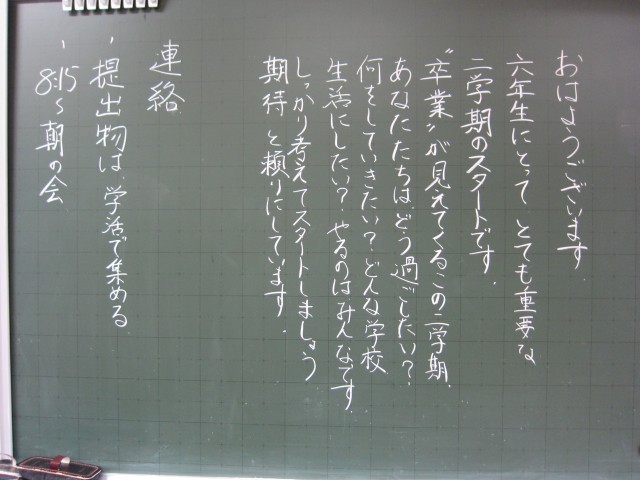 おはようございます.
六年生にとって とても重要な
二学期のスタートです.
“卒業”が見えてくるこの二学期.
あなたたちは、どう過ごしたい?
何をしていきたい? どんな学校
生活にしたい? やるのはみんなです.
しっかり考えてスタートしましょう
期待と頼りにしています.
連絡
、提出物は、学活で集める
、8:15～朝の会